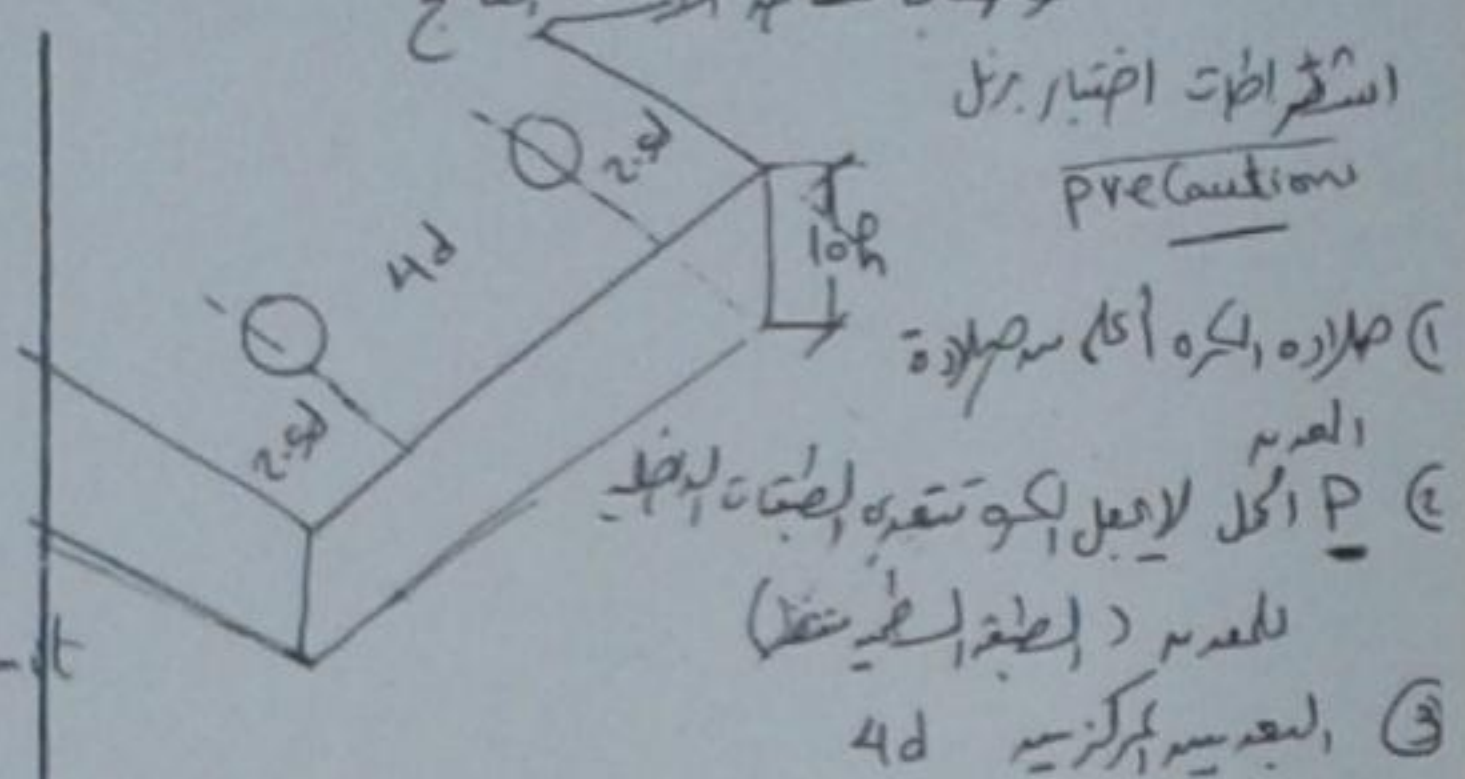 ج
اشتراطات اختبار برنل
precautions
① صلادة الكره أعلى من صلادة
المعدن
② P الحمل لا يجعل الكره تتعدى الطبقات الداخليه
للمعدن (الطبقه السطحيه فقط)
③ البعد بين المركزين 4d
2.5d
4d
2.5d
10h
t